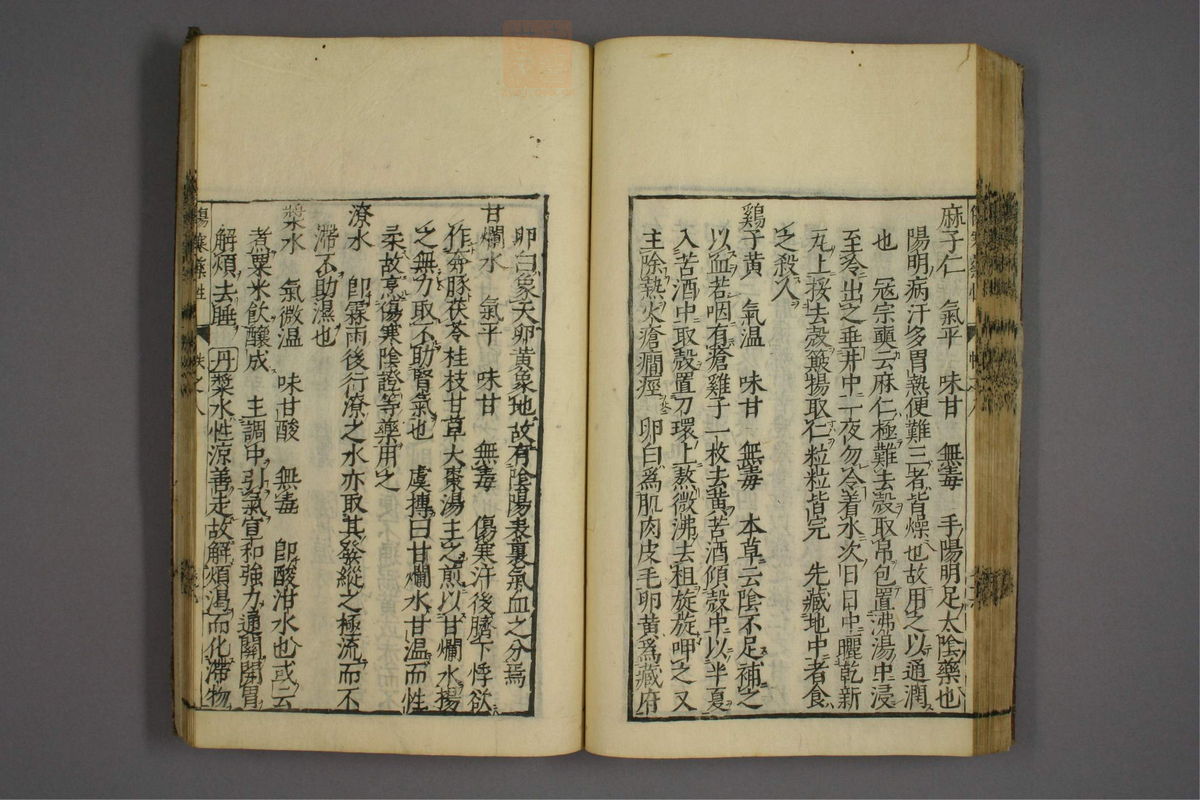 麻子仁　氣平　味甘　無毒　手陽明足太陰藥也
陽明病汗多胃熱便難三者皆燥也故用之以通潤
也　冦宗奭云麻仁極難去殼取帛包置沸湯中浸
至冷出之垂井中一夜勿冷着水次日日中曬乾新
瓦上挼去殼簸揚取仁粒粒皆完　先藏地中者食
之殺人
鷄子黄　氣温　味甘　無毒　本草云陰不足補之
以血若咽有瘡雞子一枚去黄苦酒傾殼中以半夏
入苦酒中取殼置刀環上熬微沸去柤旋旋呷之又
主除熱火瘡癎痙　卵白爲肌肉皮毛卵黄爲藏府
卵白象天卵黄象地故有陰陽表裏氣血之分焉
甘爛水　氣平　味甘　無毒　傷寒汗後臍下悸欲
作奔豚茯苓桂枝甘草大棗湯主之煎以甘爛水揚
之無力取不助腎氣也　虞摶曰甘爛水甘温而性
柔故烹傷寒陰證等藥用之
潦水　卽霖雨後行潦之水亦取其發縱之極流而不
滯不助濕也
漿水　氣微温　味甘酸　無毒　卽酸泔水也或云
煮粟米飲釀成　主調中引氣宣和強力通關開胃
解煩去睡　丹漿水性涼善走故解煩渴而化滯物
傷寒藥性　卷之八